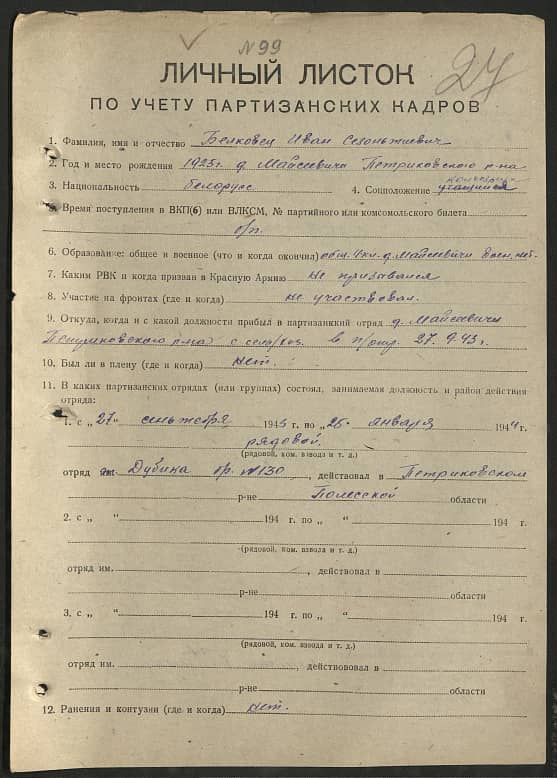 № 99
27
ЛИЧНЫЙ ЛИСТОК
ПО УЧЕТУ ПАРТИЗАНСКИХ КАДРОВ
1. Фамилия, имя и отчество Белковец Иван
2. Год и место рождения 1925 г. д. Майсеевичи Петриковского р-на
3. Национальность белорус 4. Соцположение учащийся
5. Время поступления в ВКП(б) или ВЛКСМ, № партийного или комсомольского билета
б/п.
6. Образование: общее и военное (что и когда окончил) общ. 4 кл. д. Майсеевичи воен. нет.
7. Каким РВК и когда призван в Красную Армию не призывался
8. Участие на фронтах (где и когда) не участвовал.
9. Откуда, когда и с какой должности прибыл в партизанкий отряд д. Майсеевичи
Петриковского р-на с в п/отр. 27. 9 43 г.
10. Был ли в плену (где и когда) нет.
11. В каких партизанских отрядах (или группах) состоял, занимаемая должность и район действия
отряда:
1. с „27" сентября 1943 г. по „25." января 1944 г.
рядовой.
(рядовой, ком. взвода и т. д.)
отряд им. Дубина бр. №130, действовал в Петриковском
р-не Полесской области
2. с „ " 194 г. по „ " 194 г.
(рядовой, ком. взвода и т. д.)
отряд им. , действовал в
р-не области
3. с „ " 194 г. по „ " 194 г.
(рядовой, ком. взвода и т. д.)
отряд им. , действововал в
р-не области
12. Ранения и контузии (где и когда) нет.